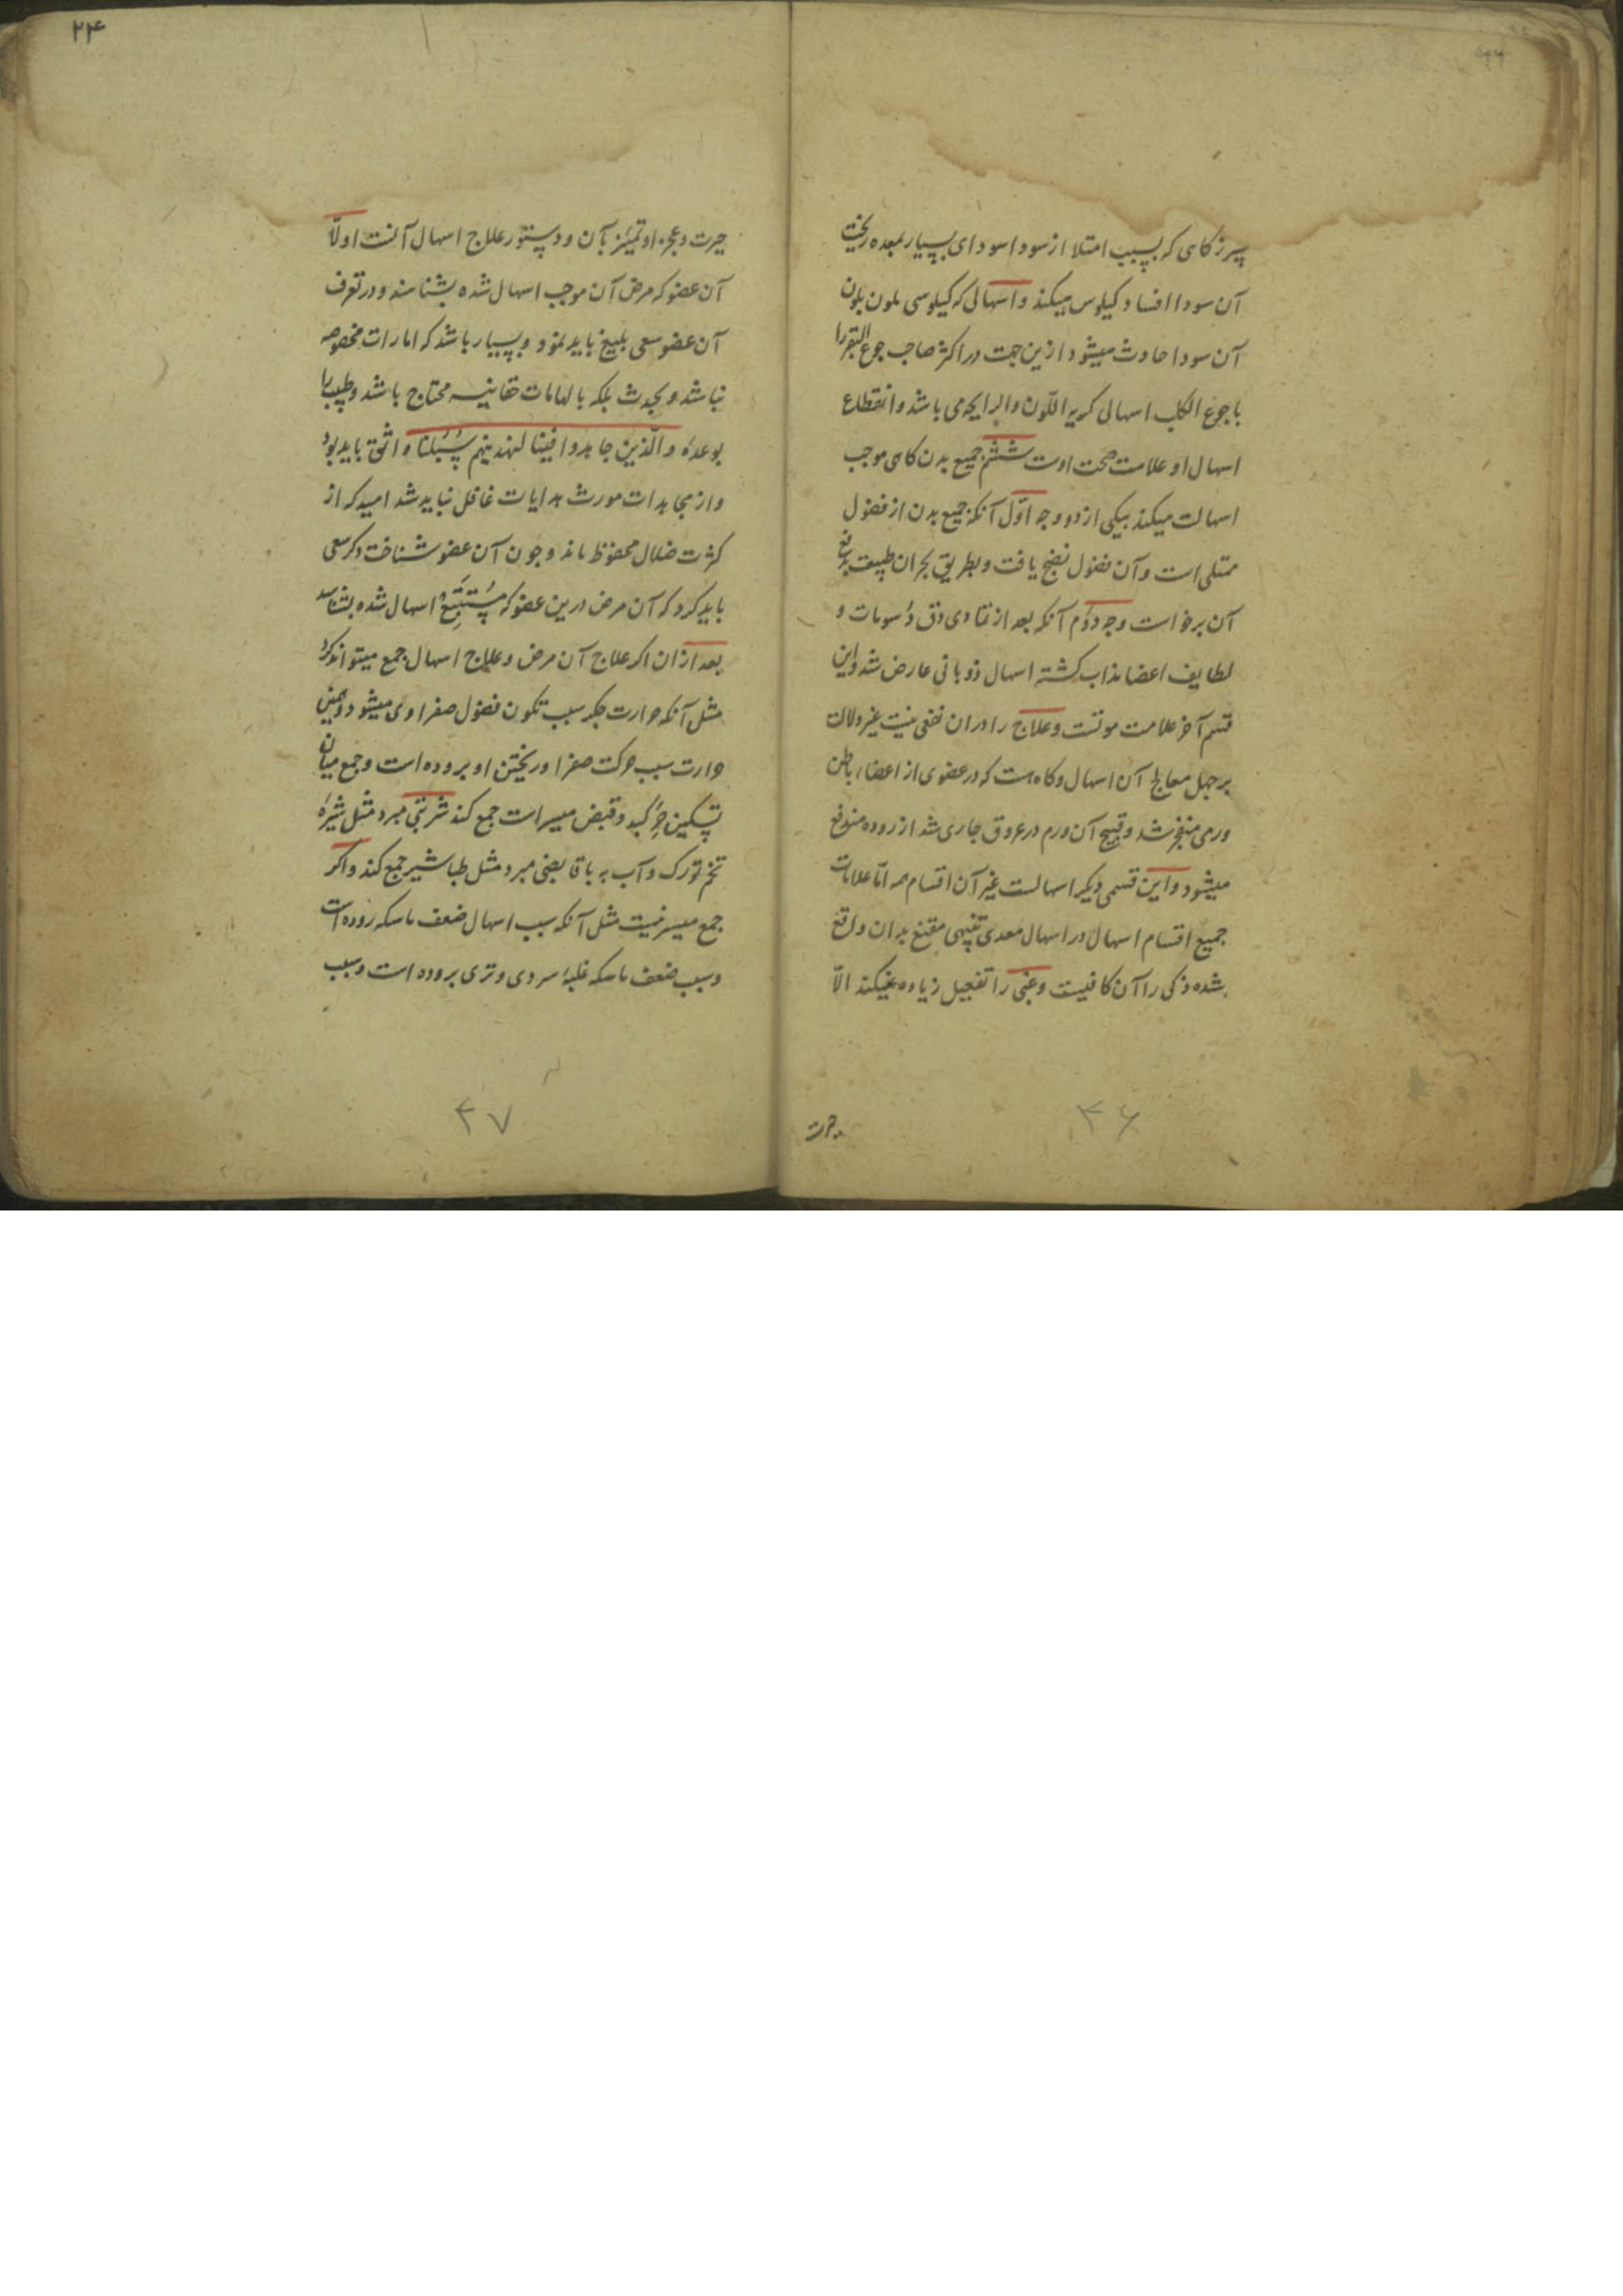 سپرز کاهی که بسبب امتلا از سودا سودای بسیار بمعده ریخت
آن سودا افساد کیلوس میکند و اسهالی که کیلوسی ملون بلون
آن سودا حادث میشود ازین جهت در اکثر صاحب جوع البقر را
با جوع الکلب اسهالی کریه اللّون و الرایحه می باشد و انقطاع
اسهال او علامت صحت اوست ششم جمیع بدن کاهی موجب
اسهالست میکند بیکی از دو وجه اوّل آنکه جمیع بدن از فضول
ممتلی است و آن فضول نضج یافت و بطریق بحران طبیعت بدفع
آن برخواست وجه دوّم آنکه بعد از تمادی دق دسومات و
لطایف اعضا مذاب کشته اسهال ذوبانی عارض شد و این
قسم آخر علامت موتست و علاج را دران نفعی نیست غیر دلالت
بر جهل معالج آن اسهال و کاهست که در عضوی از اعضاء باطن
ورمی منفجر شد و قیح آن ورم در عروق جاری شد از روده مندفع
میشود و این قسمی دیکر اسهالست غیر آن اقسام همه امّا علامات
جمیع اقسام اسهال در اسهال معدی تنبیهی مقنع بدان واقع
شده ذکی را آن کافیست و غبی را تفصیل زیاده نمیکند الّا
حیرت
۳۶
۲۴
حیرت و عجز او تمییز بآن و دستور علاج اسهال آنست اولّا
آن عضو که مرض آن موجب اسهال شده بشناسند و در تعرف
آن عضو سعی بلیغ باید نمود و بسیار باشد که امارات مخصوصه
نباشد و بحدث بلکه بالهامات حقانیه محتاج باشد و طبیب را
بوعدهٔ و الّذین جاهدوا فینا لنهدینهم سُبُلنا واثق باید بود
و از مجاهدات مورث هدایات غافل نباید شد امید که از
کثرت ضلال محفوظ ماند و چون آن عضو شناخت دکر سعی
باید کرد که آن مرض درین عضو که مُستَتبِع اسهال شده بشناسد
بعد ازان اکر علاج آن مرض و علاج اسهال جمع میتواند کرد
مثل آنکه حرارت جکر سبب تکون فضول صفراوی میشود و همین
حرارت سبب حرکت صفرا و ریختن او بروده است و جمع میان
تسکین حرّ کبد و قبض میسر است جمع کند شربتی مبرد مثل شیرهٔ
تخم تورک و آب به با قابضی مبرد مثل طباشیر جمع کند و اکر
جمع میسر نیست مثل آنکه سبب اسهال ضعف ماسکه روده است
و سبب ضعف ماسکه غلبهٔ سردی و تری بروده است و سبب
۴۷